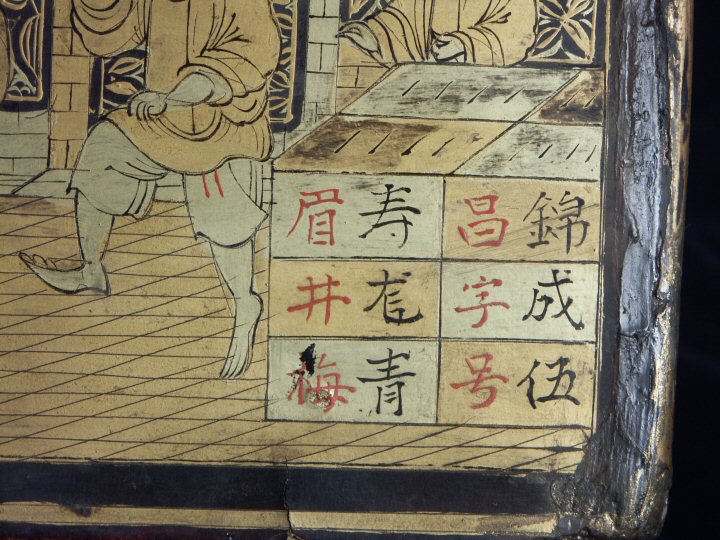 錦昌
成字
伍号
寿眉
龙井
青梅